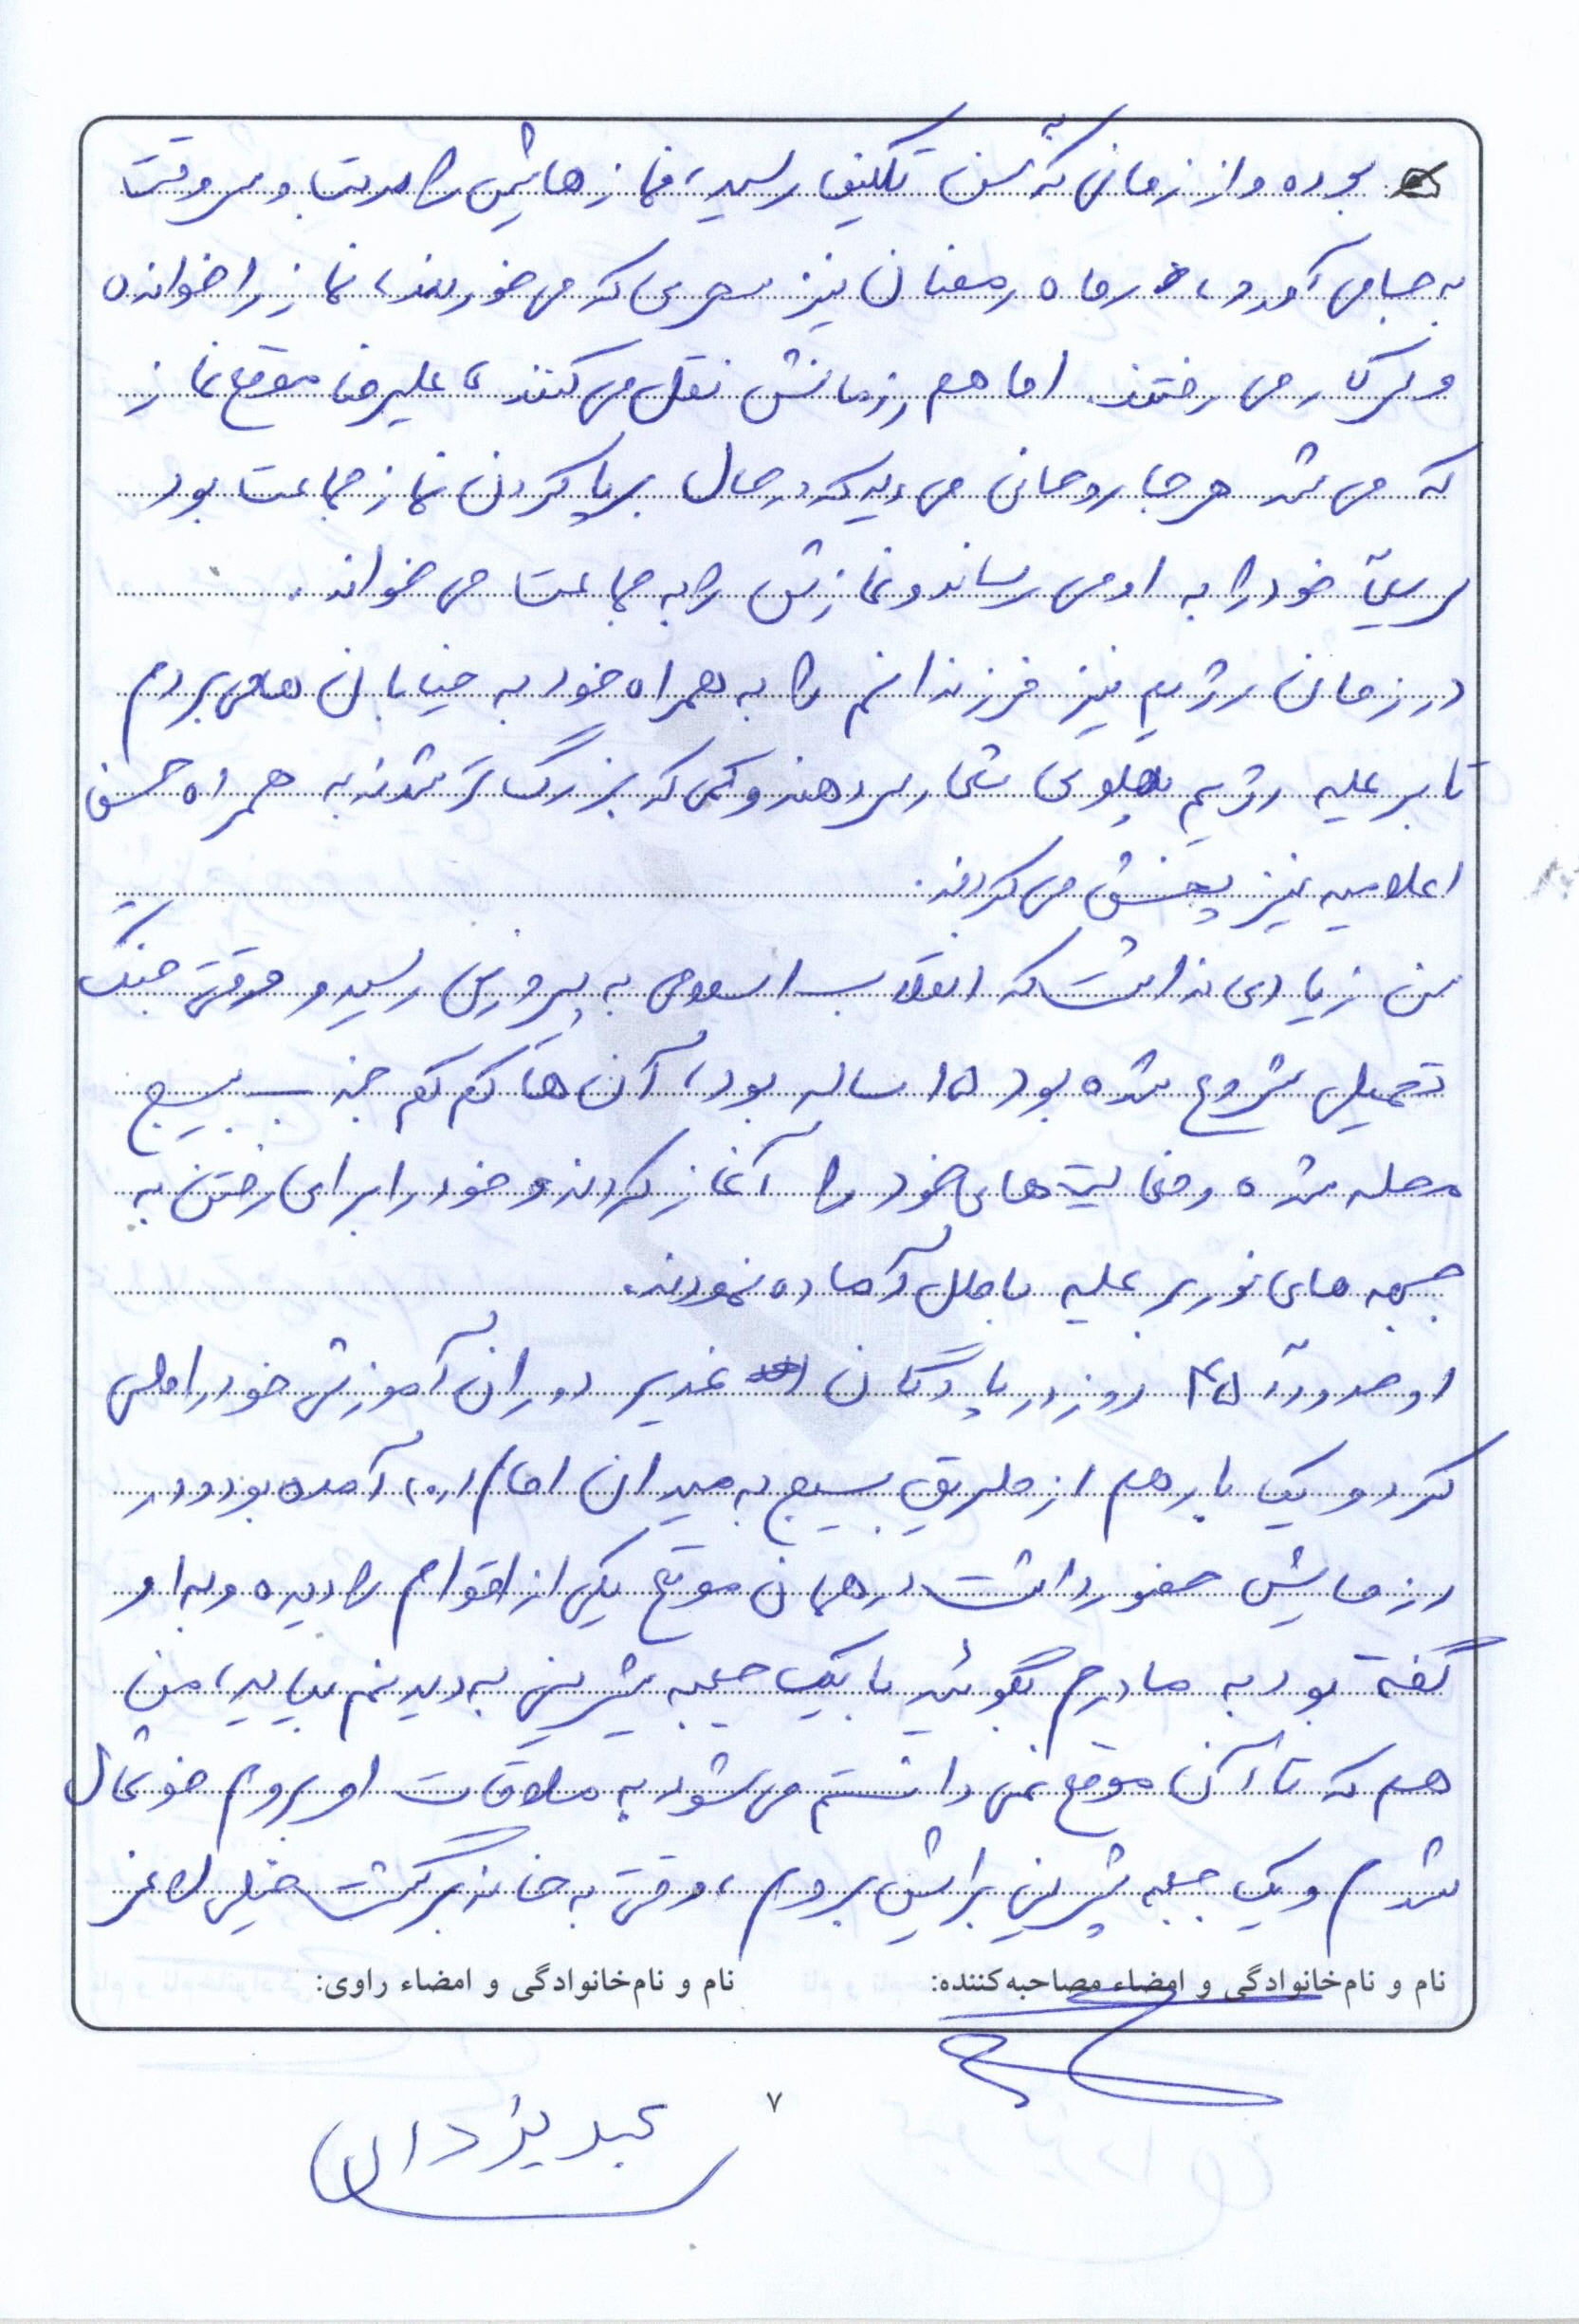 بوده و از زمانی که به سن تکلیف رسید، نمازهایش را مرتب و سر وقت
به جا می آورد، در ماه رمضان نیز سحری که می خوردند، نماز را خوانده
و سر کار می رفتند. اما هم رزمانش نقل می کنند، علیرضا موقع نماز
که می شد هر جا روحانی می دید که در حال برپا کردن نماز جماعت بود
سریعاً خود را به او می رساند و نمازش را به جماعت می خواند.
در زمان رژیم نیز فرزندانم را به همراه خود به خیابان ها می بردم
تا بر علیه رژیم پهلوی شعار سر دهند و کمی که بزرگ تر شدند به همراه حسن
اعلامیه نیز پخش می کردند.
سن زیادی نداشت که انقلاب اسلامی به پیروزی رسید و وقتی جنگ
تحمیلی شروع شده بود ۱۵ ساله بود، آن ها کم کم جذب بسیج
محله شده و فعالیت های خود را آغاز کردند و خود را برای رفتن به
جبهه های نور بر علیه باطل آماده نمودند.
او حدوداً ۴۵ روز در پادگان غدیر دوران آموزش خود را طی
کرد و یک بار هم از طریق بسیج به میدان امام (ره) آمده بود و در
رزمایش حضور داشت در همان موقع یکی از اقوام را دیده و به او
گفته بود به مادرم بگوئید با یک جعبه شیرینی به دیدنم بیاید، من
هم که تا آن موقع نمی دانستم می شود به ملاقات او بروم خوشحال
شدم و یک جعبه شیرینی برایش بردم، وقتی به خانه برگشت خیلی لاغر
نام و نام‌خانوادگی و امضاء مصاحبه‌کننده:
نام و نام‌خانوادگی و امضاء راوی:
۷